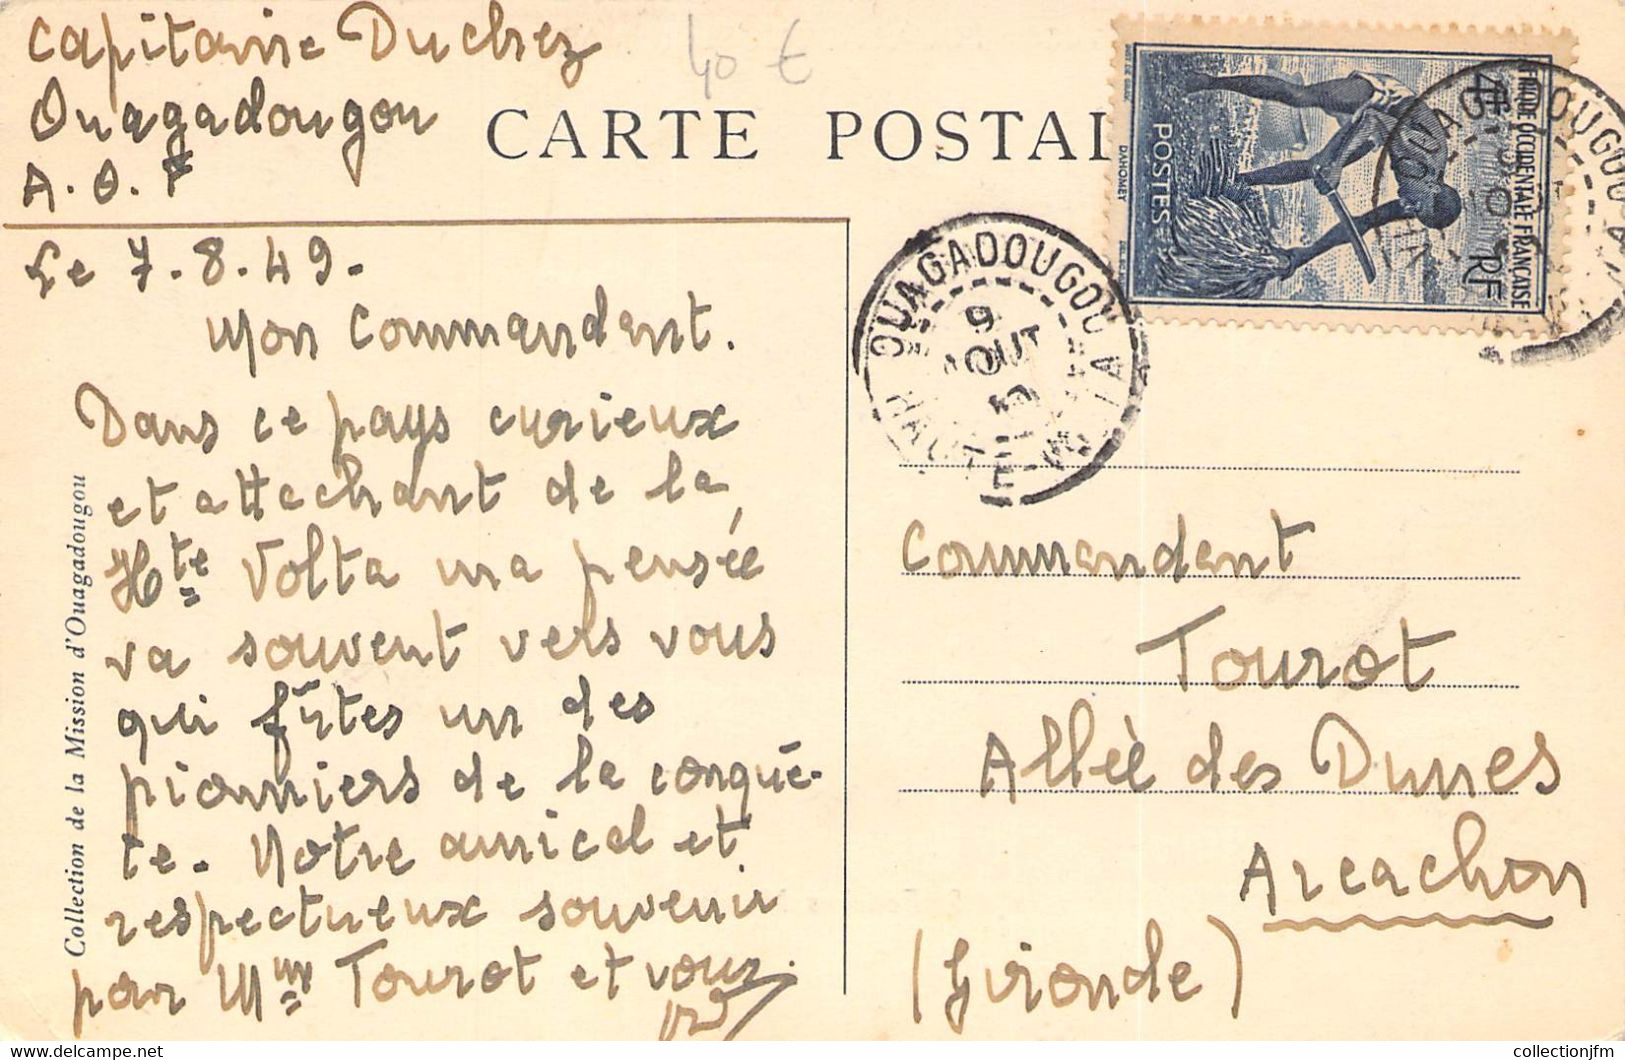 Capitaine Duchez
Ouagadougou
A.O.F
40 €
CARTE POSTAL
Le 7.8.49.
Mon Commandant.
Dans ce pays curieux
et attachant de la
Hte Volta ma pensée
va souvent vers vous
qui fûtes un des
pionniers de la conquê-
te. Notre amical et
respectueux souvenir
pour Mme Tourot et vous.
Collection de la Mission d'Ouagadougou
FRIQUE OCCIDENTALE FRANÇAISE
4F
RF
POSTES
DAHOMEY
OUAGADOUGOU
HAUTE-VOLTA
9
AOUT
OUAGADOUGOU
Commandant
Tourot
Allée des Dunes
Arcachon
(Gironde)
collectionjfm